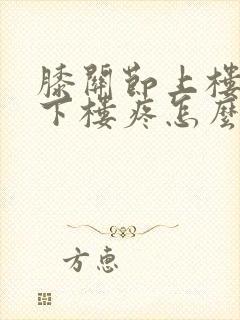 膝關節上樓
下樓疼怎麼
方惠